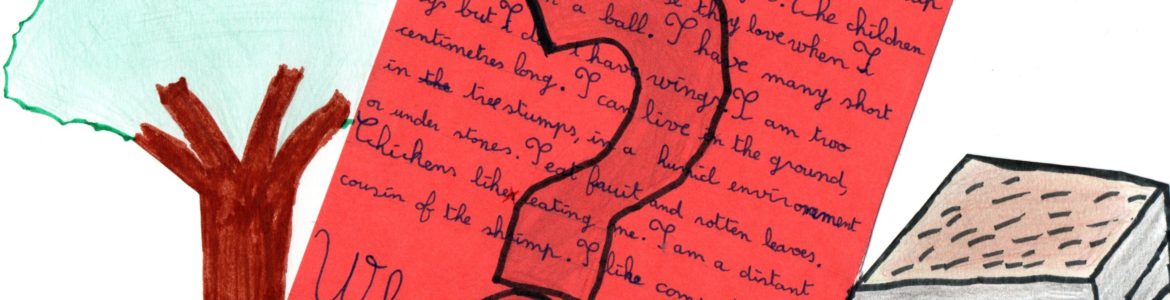 The children
they love when I
a ball. I have many short
but I have wings. I am two
centimetres long. I can live in the ground,
in the tree stumps, in a humid environment
or under stones. I eat fruit and rotten leaves.
Chickens like eating me. I am a distant
cousin of the shrimp. I like
?